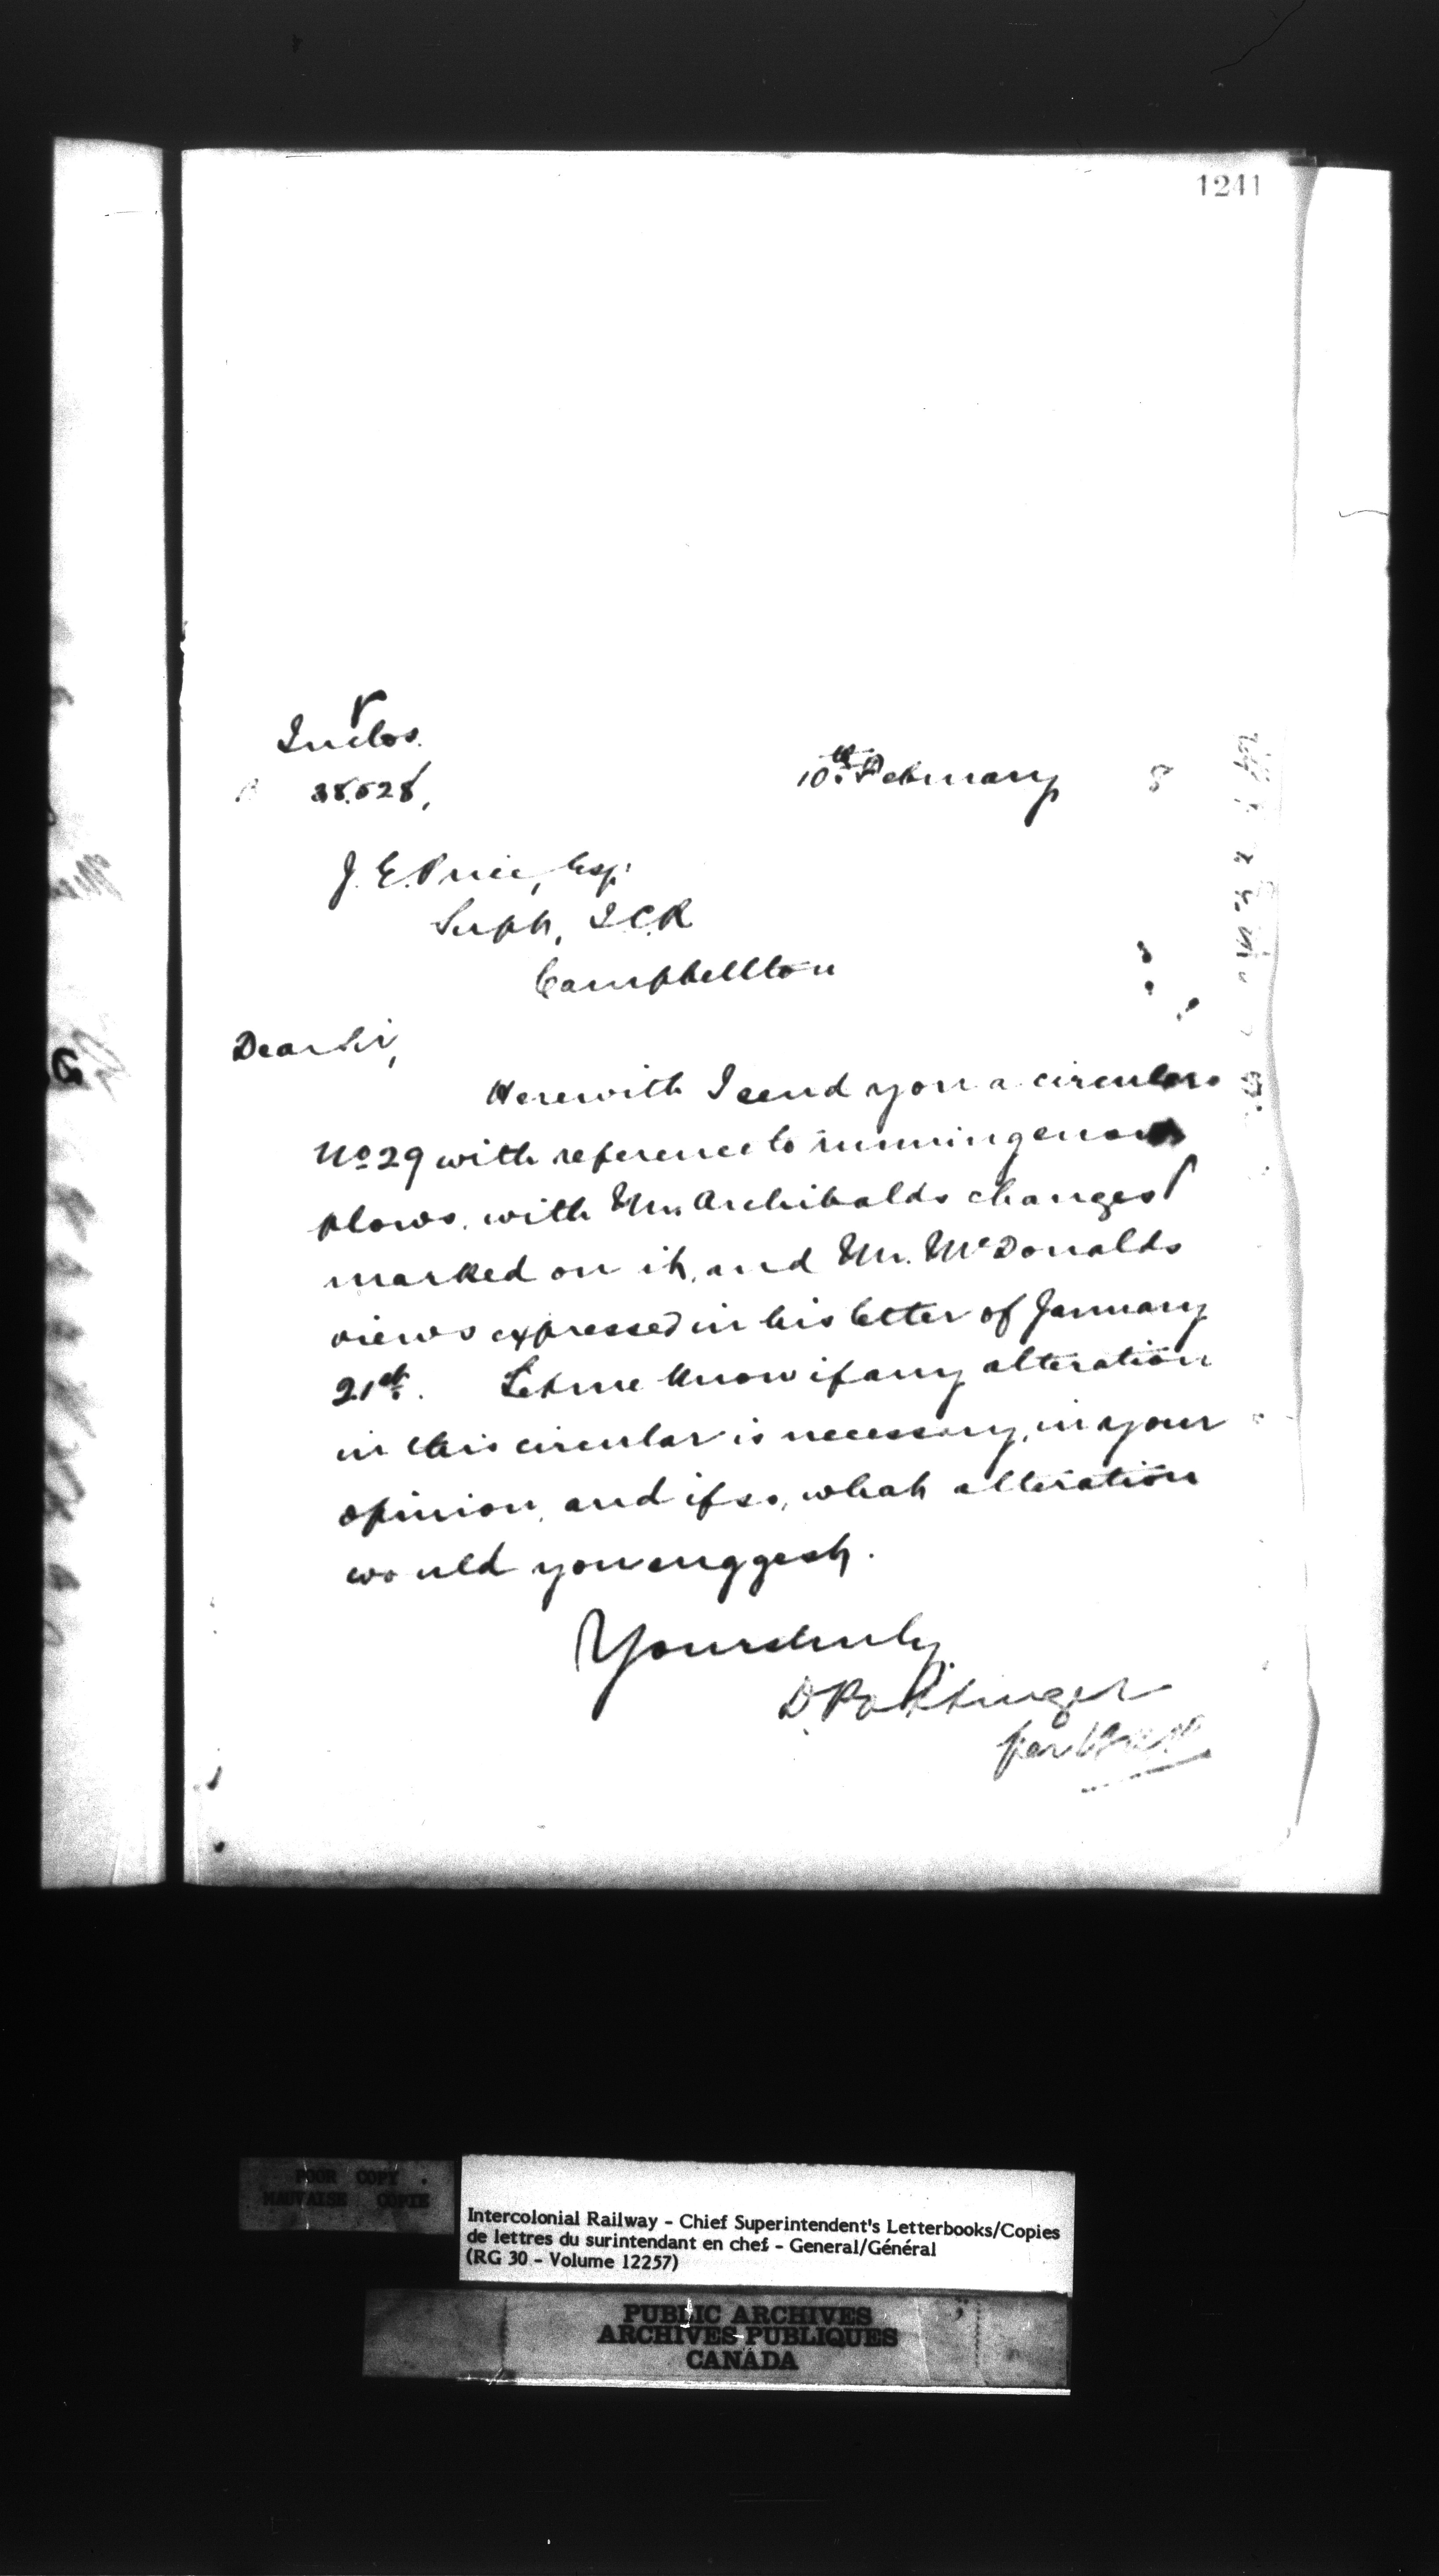 1241
Inclos.
38.528,
10th February 8
J. E. Price, Esq.
Supt, I.C.R
Campbellton
Dear Sir,
Herewith I send you a circular
No 29 with reference to running snow
plows, with Mr. Archibalds changes
marked on it, and Mr. McDonalds
views expressed in his letter of January
21st. Let me know if any alteration
in this circular is necessary, in your
opinion, and if so, what alteration
would you suggest.
Yours truly
D Pottinger
per
POOR COPY
MAUVAISE COPIE
Intercolonial Railway - Chief Superintendent's Letterbooks/Copies
de lettres du surintendant en chef - General/Général
(RG 30 - Volume 12257)
PUBLIC ARCHIVES
ARCHIVES PUBLIQUES
CANADA